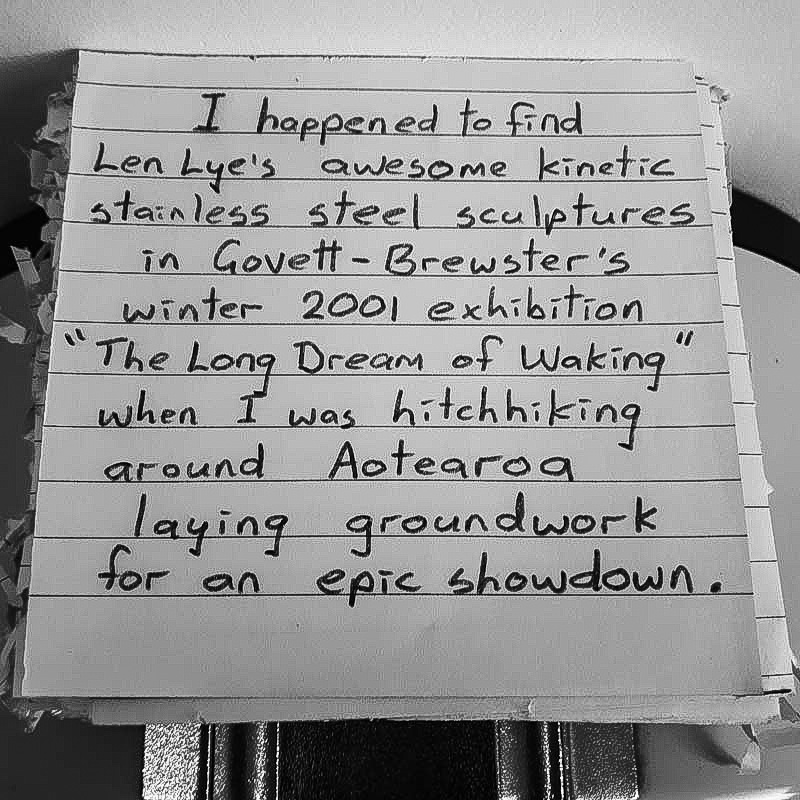 I happened to find
Len Lye's awesome kinetic
stainless steel sculptures
in Govett-Brewster's
winter 2001 exhibition
"The Long Dream of Waking"
when I was hitchhiking
around Aotearoa
laying groundwork
for an epic showdown.